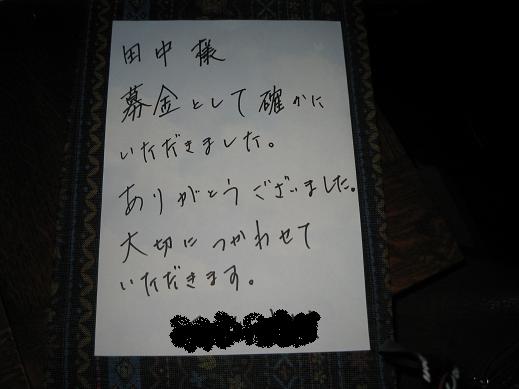 田中様
募金として確かに
いただきました。
ありがとうございました。
大切につかわせて
いただきます。